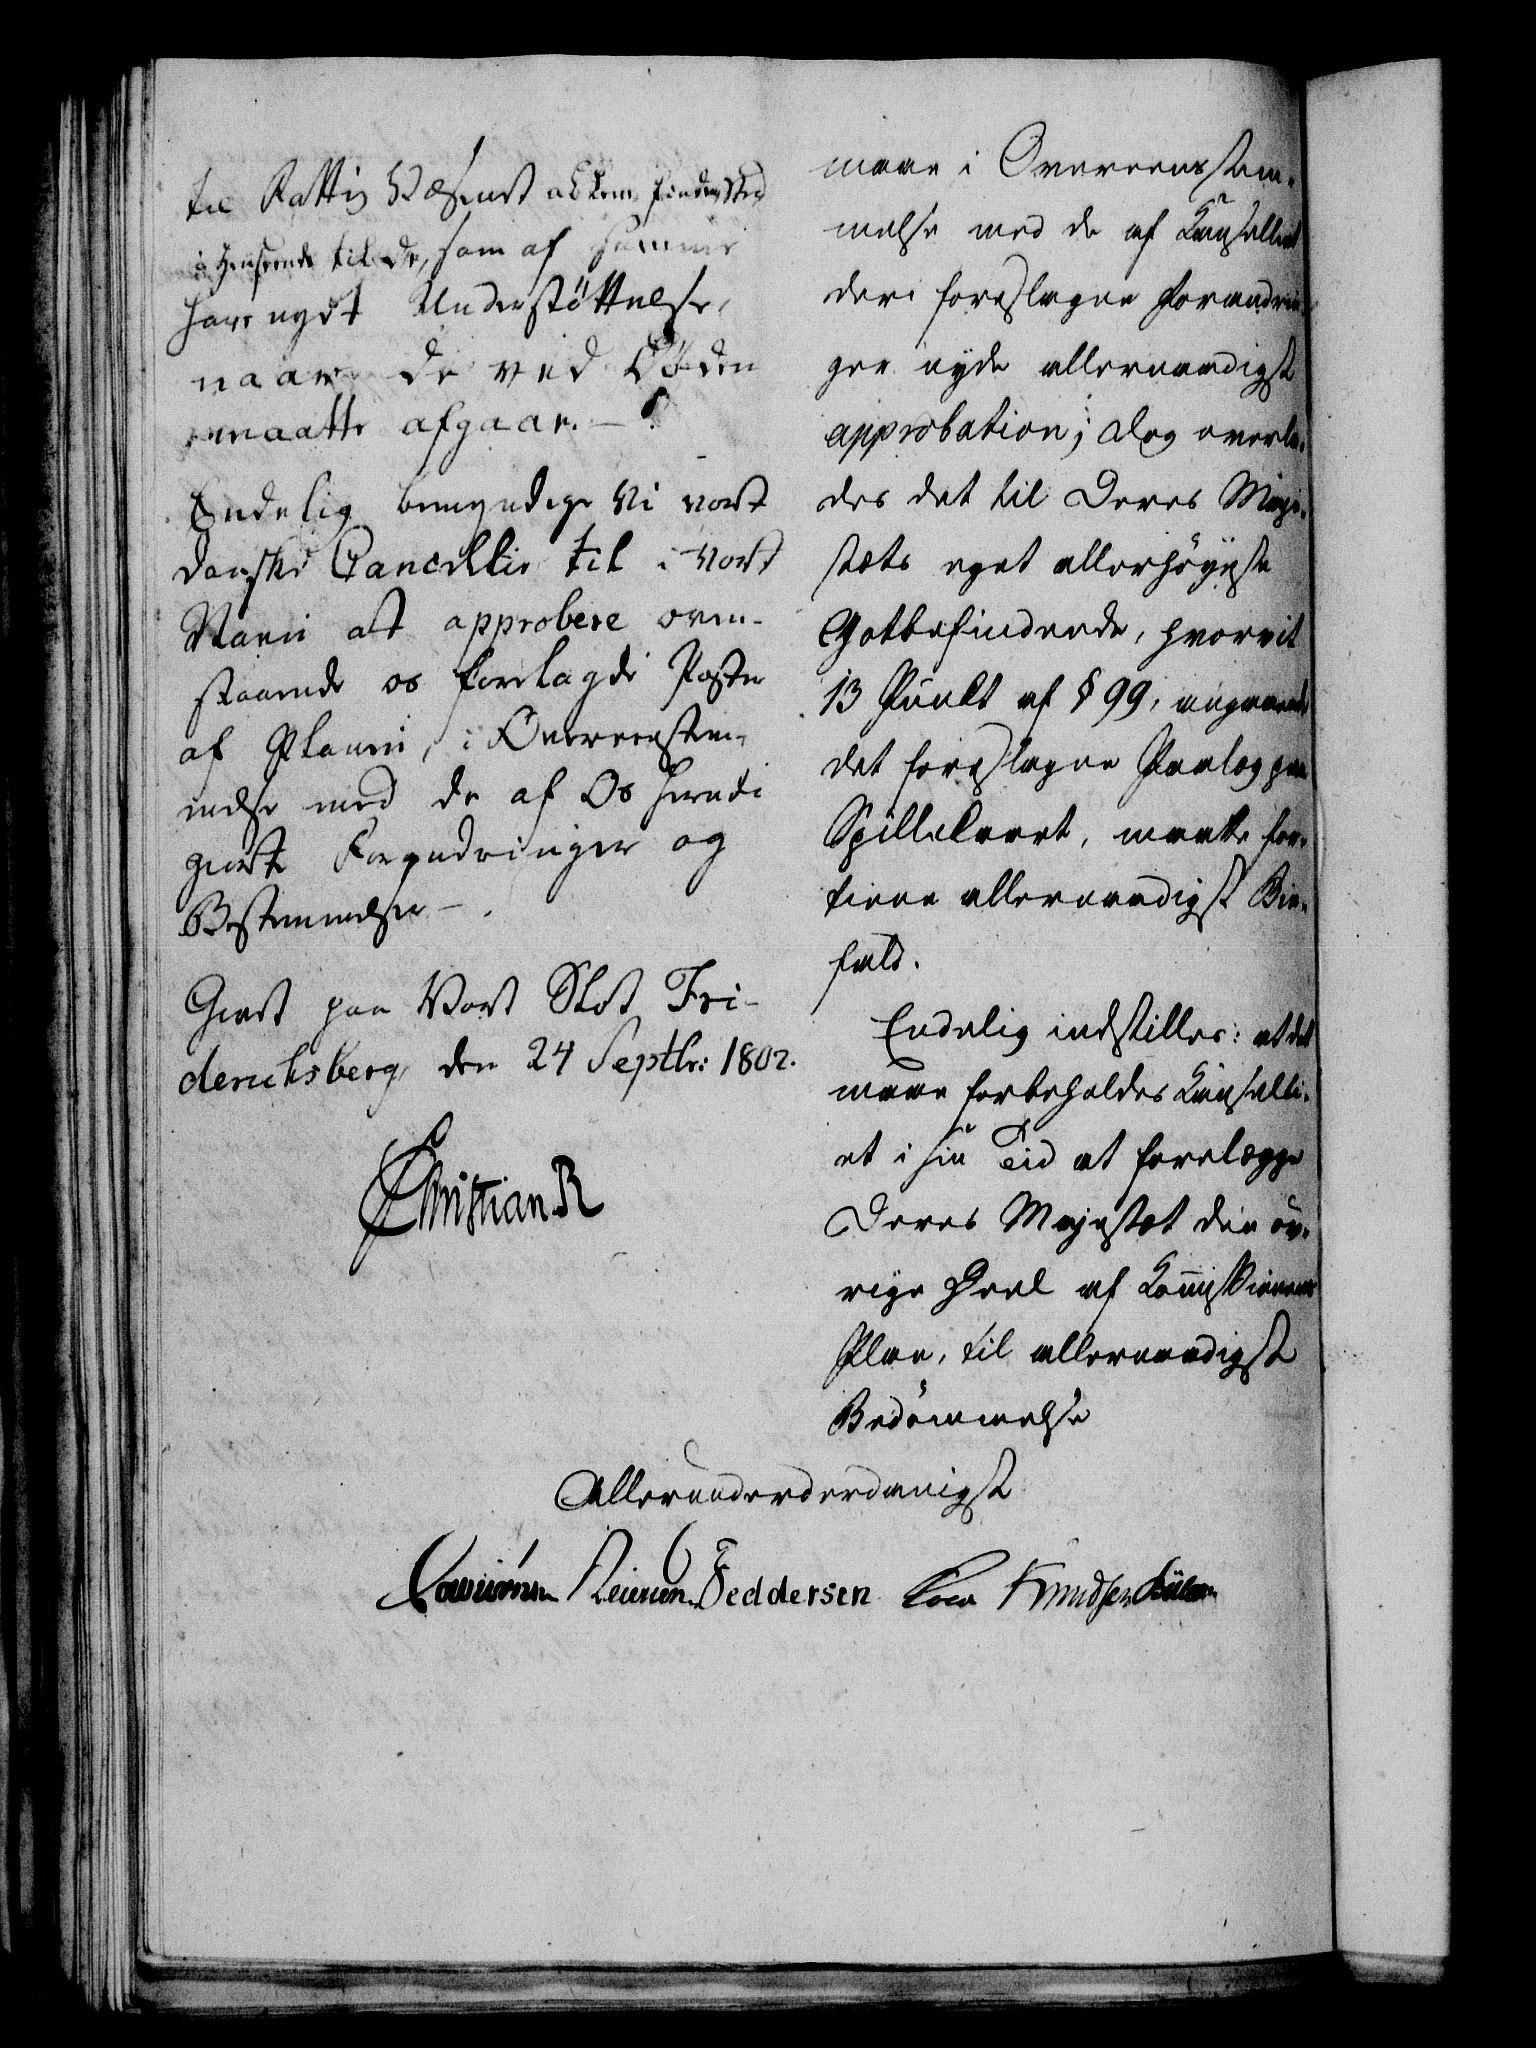 til Fattig Væsenet alene finder Sted
i Henseende til de, som af samme
have nydt Understøttelse,
naar de ved Døden
maatte afgaae. –
Endelig bemyndige Vi vort
danske Cancellie til i Vort
Navn at approbere oven-
staaende os forelagde Poster
af Planen, i Overeenstem-
melse med de af Os herudi
giorte Forandringer og
Bestemmelser –.
Givet paa Vort Slot Fri-
derichsberg, den 24 Septbr: 1802.
Christian R
maae i Overeensstem-
melse med de af Kancelliet
deri foreslagne Forandrin-
ger nyde allernaadigst
approbation; dog overla-
des det til Deres Maje-
stæts eget allerhöyeste
Gotbefindende, hvorvit
13 Punkt af § 99, angaaende
det foreslagne Paalæg paa
Spillekaart, maatte for-
tiene allernaadigst Bie-
fald.
Endelig indstilles: at det
maae forbeholdes Kancelli-
et i sin Tid at forelægge
Deres Majestæt den öv-
rige Deel af Kommissionens
Plan, til allernaadigst
Bedömmelse
Allerunderderdanigst
Feddersen Knudsen